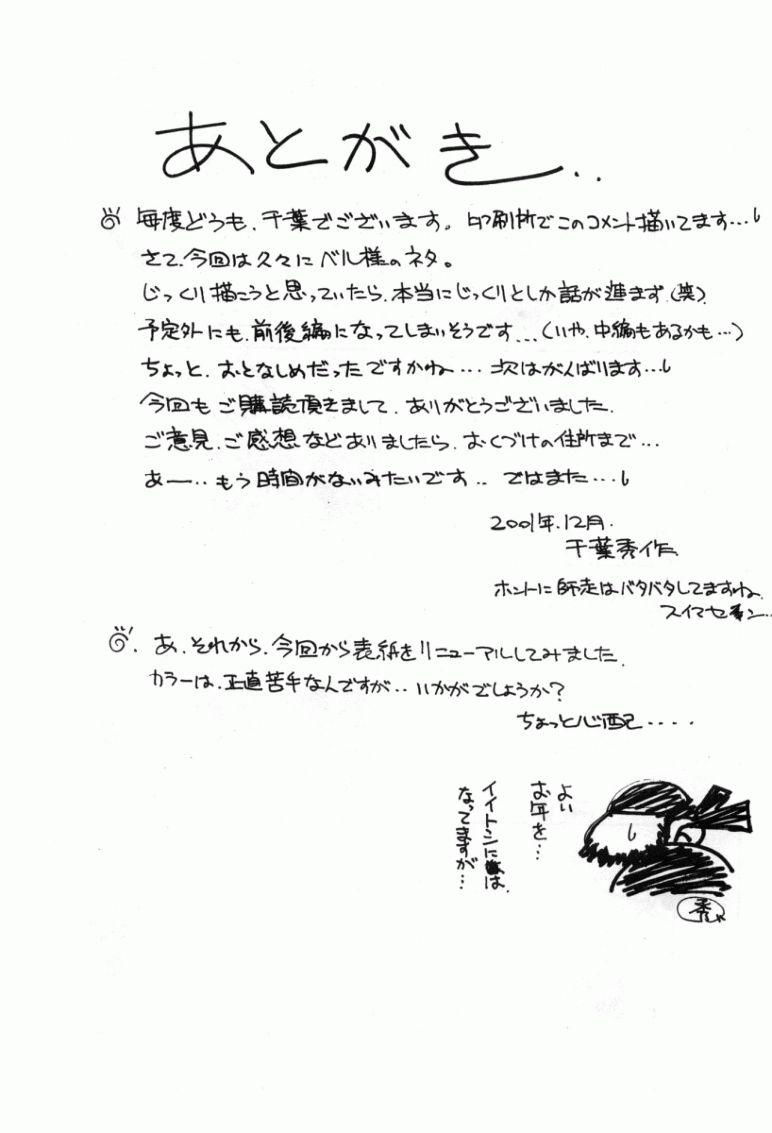 あとがき..
毎度どうも、千葉でございます。印刷所でこのコメント描いてます…
さて、今回は久々にベル様のネタ。
じっくり描こうと思っていたら、本当にじっくりとしか話が進まず(笑)、
予定外にも、前後編になってしまいそうです…(いや、中編もあるかも…)
ちょっと、おとなしめだったですかね…次はがんばります…
今回もご購読頂きまして、ありがとうございました、
ご意見、ご感想などありましたら、おくづけの住所まで…
あー‥もう時間がないみたいです‥ではまた…
2001年、12月、
千葉秀作
ホントに師走はバタバタしてますね、
スイマセン…
あ、それから、今回から表紙をリニューアルしてみました、
カラーは、正直苦手なんですが‥いかがでしょうか?
ちょっと心配‥‥
よい
お年を…
イイトシには、
なってますが…
秀